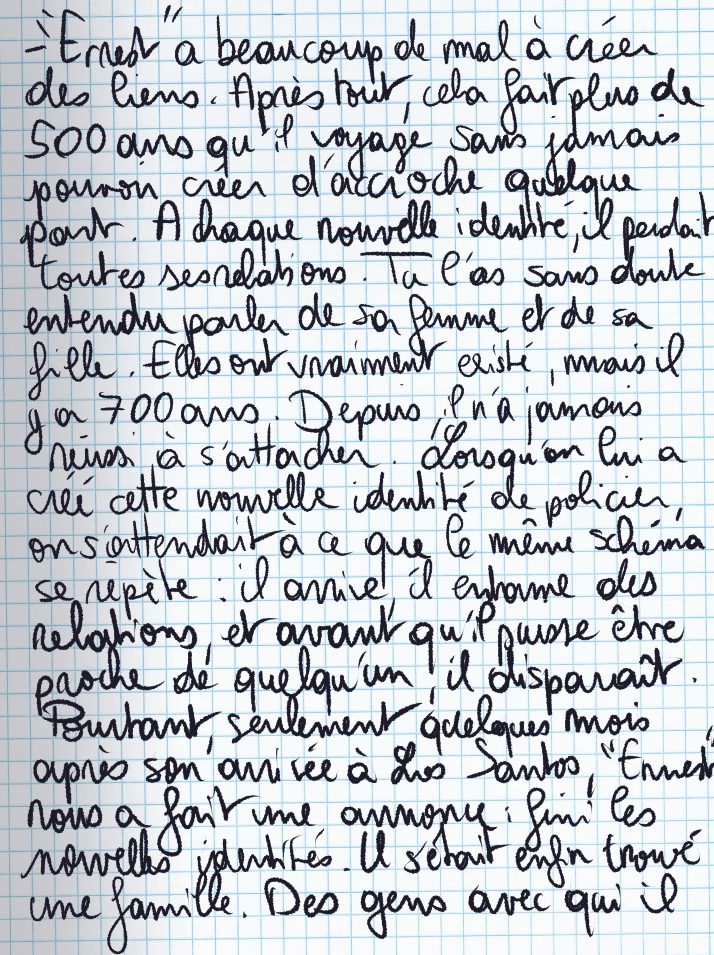 - "Ernest" a beaucoup de mal à créer
des liens. Après tout, cela fait plus de
500 ans qu'il voyage sans jamais
pouvoir créer d'accroche quelque
part. A chaque nouvelle identité, il perdait
toutes ses relations. Tu l'as sans doute
entendu parler de sa femme et de sa
fille. Elles ont vraiment existé, mais il
y a 700 ans. Depuis, il n'a jamais
réussi à s'attacher. Lorsqu'on lui a
créé cette nouvelle identité de policier,
on s'attendait à ce que le même schéma
se répète : il arrive, il entame des
relations, et avant qu'il puisse être
proche de quelqu'un, il disparaît.
Pourtant, seulement quelques mois
après son arrivée à Los Santos, "Ernest"
nous a fait une annonce : fini les
nouvelles identités. Il s'était enfin trouvé
une famille. Des gens avec qui il